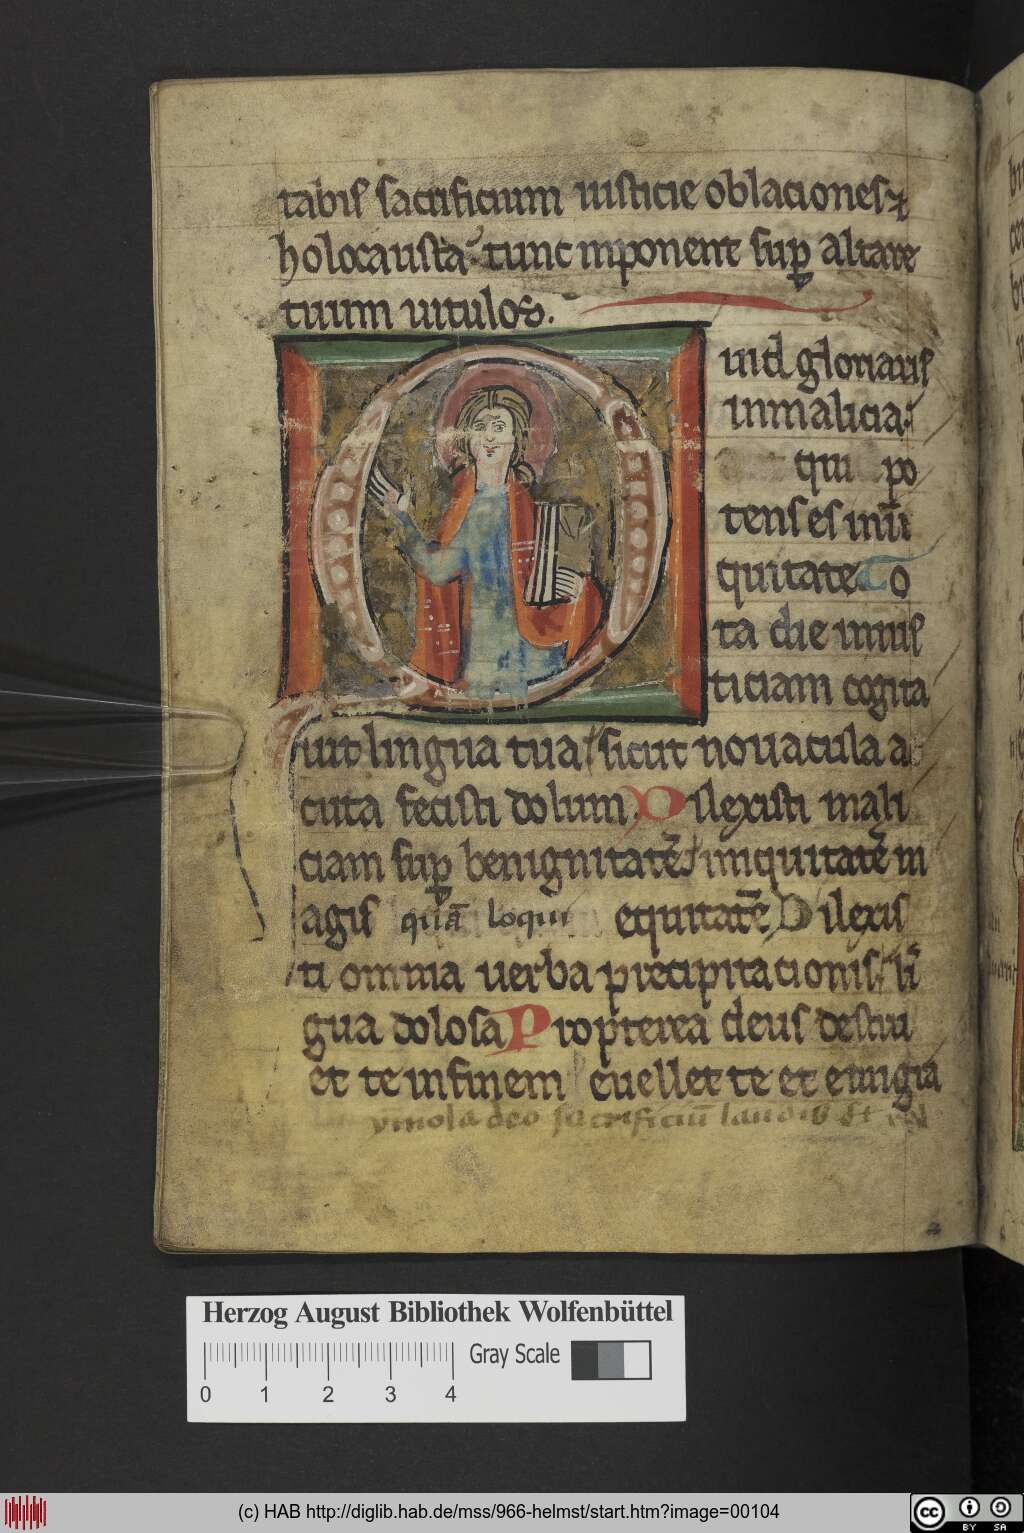 tabis sacrificium iusticie oblaciones &
holocausta tunc inponent sup altare
tuum uitulos.
Quid gloriaris
in malicia:
qui po
tens es in ini
quitate To
ta die inius
ticiam cogita
uit lingua tua sicut nouacula a
cuta fecisti dolum. Dilexisti mali
ciam sup benignitatē iniquitatē m
agis quā loqui equitatē Dilexis
ti omnia uerba precipitacionis li
gua dolosa Propterea deus destru
et te in finem euellet te et emigra
ymola deo sacrificiū laudis et
Herzog August Bibliothek Wolfenbüttel
Gray Scale
0 1 2 3 4
(c) HAB http://diglib.hab.de/mss/966-helmst/start.htm?image=00104
cc BY SA